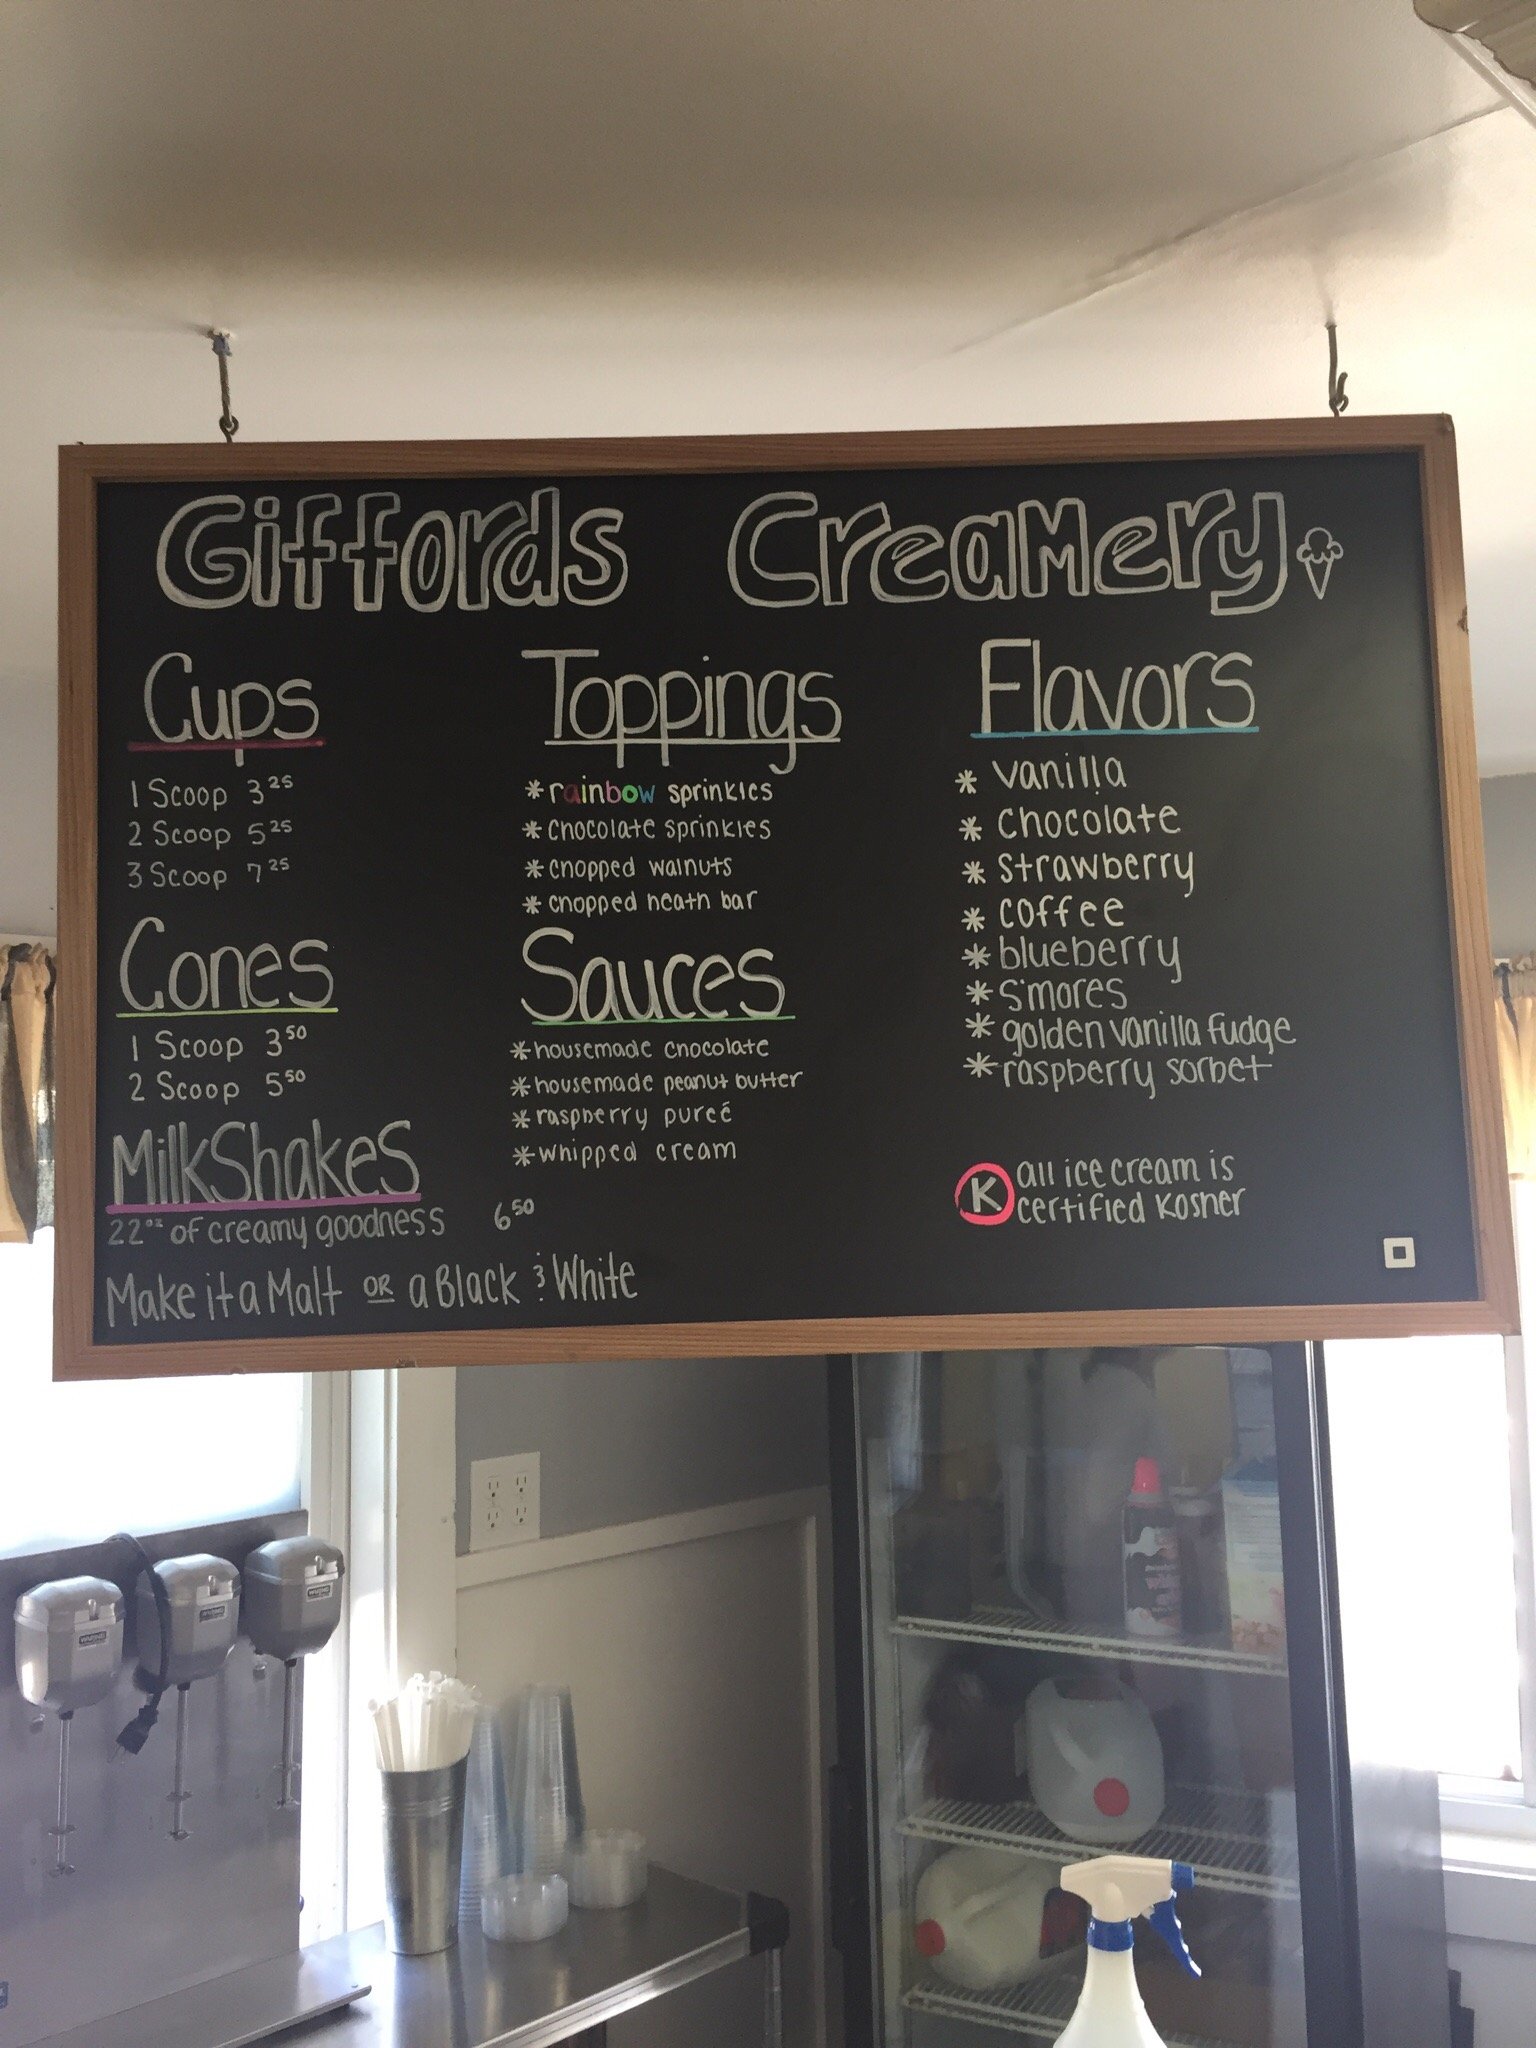 Giffords Creamery
Cups
1 Scoop 3 25
2 Scoop 5 25
3 Scoop 7 25
Cones
1 Scoop 3 50
2 Scoop 5 50
MilkShakes
22 oz of creamy goodness 6 50
Make it a Malt OR a Black & White
Toppings
* rainbow sprinkles
* chocolate sprinkles
* chopped walnuts
* chopped heath bar
Sauces
* housemade chocolate
* housemade peanut butter
* raspberry pureé
* whipped cream
Flavors
* vanilla
* chocolate
* strawberry
* coffee
* blueberry
* s'mores
* golden vanilla fudge
* raspberry sorbet
K all ice cream is
certified kosher
WARING
WARING
WARING